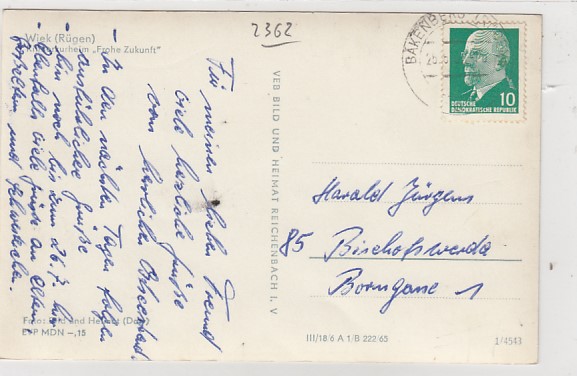 2362
Wiek (Rügen)
Kinderkurheim „Frohe Zukunft"
Für meinen lieben Freund
viele herzliche Grüße
vom herrlichen Ostseestrand.
– In den nächsten Tagen folgen
ausführlicher Grüße
bin noch bis zum 26.7. hier
Ebenfalls viele Grüße an Eltern,
und Schwesterchen.
Foto: Bild und Heimat
EVP MDN –,15
VEB BILD UND HEIMAT REICHENBACH I. V
BAKENBERG
DEUTSCHE
DEMOKRATISCHE REPUBLIK
10
Harald Jürgens
85 Bischofswerda
Borngasse 1
III/18/6 A 1/B 222/65
1/4543